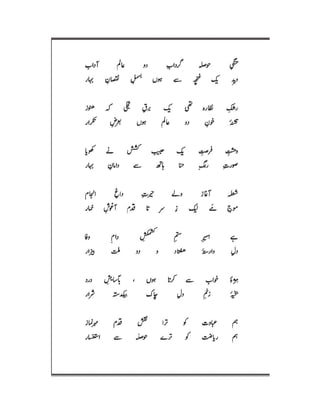 تنگیِ حوصلہ گردابِ دو عالم آداب
دیدِ یک غنچہ سے ہوں بسملِ نقصانِ بہار
رشکِ نظارہ تھی یک برقِ تجلی کہ ہنوز
تشنۂ خونِ دو عالم ہوں بعرضِ تکرار
وحشتِ فرصتِ یک جیب کشش نے کھویا
صورتِ رنگِ حنا ہاتھ سے دامانِ بہار
شعلہ آغاز ولے حیرتِ داغِ انجام
موجِ مے لیک ز سر تا قدم آغوشِ خمار
ہے اسیرِ ستمِ کشمکشِ دامِ وفا
دلِ وارستۂ ہفتاد و دو ملت بیزار
مژۂ خواب سے کرتا ہوں ، بآسایشِ درد
بخیۂ زخمِ دلِ چاک بیک دستہ شرار
ہم عبادت کو ترا نقشِ قدم مہرِ نماز
ہم ریاضت کو ترے حوصلہ سے استظہار